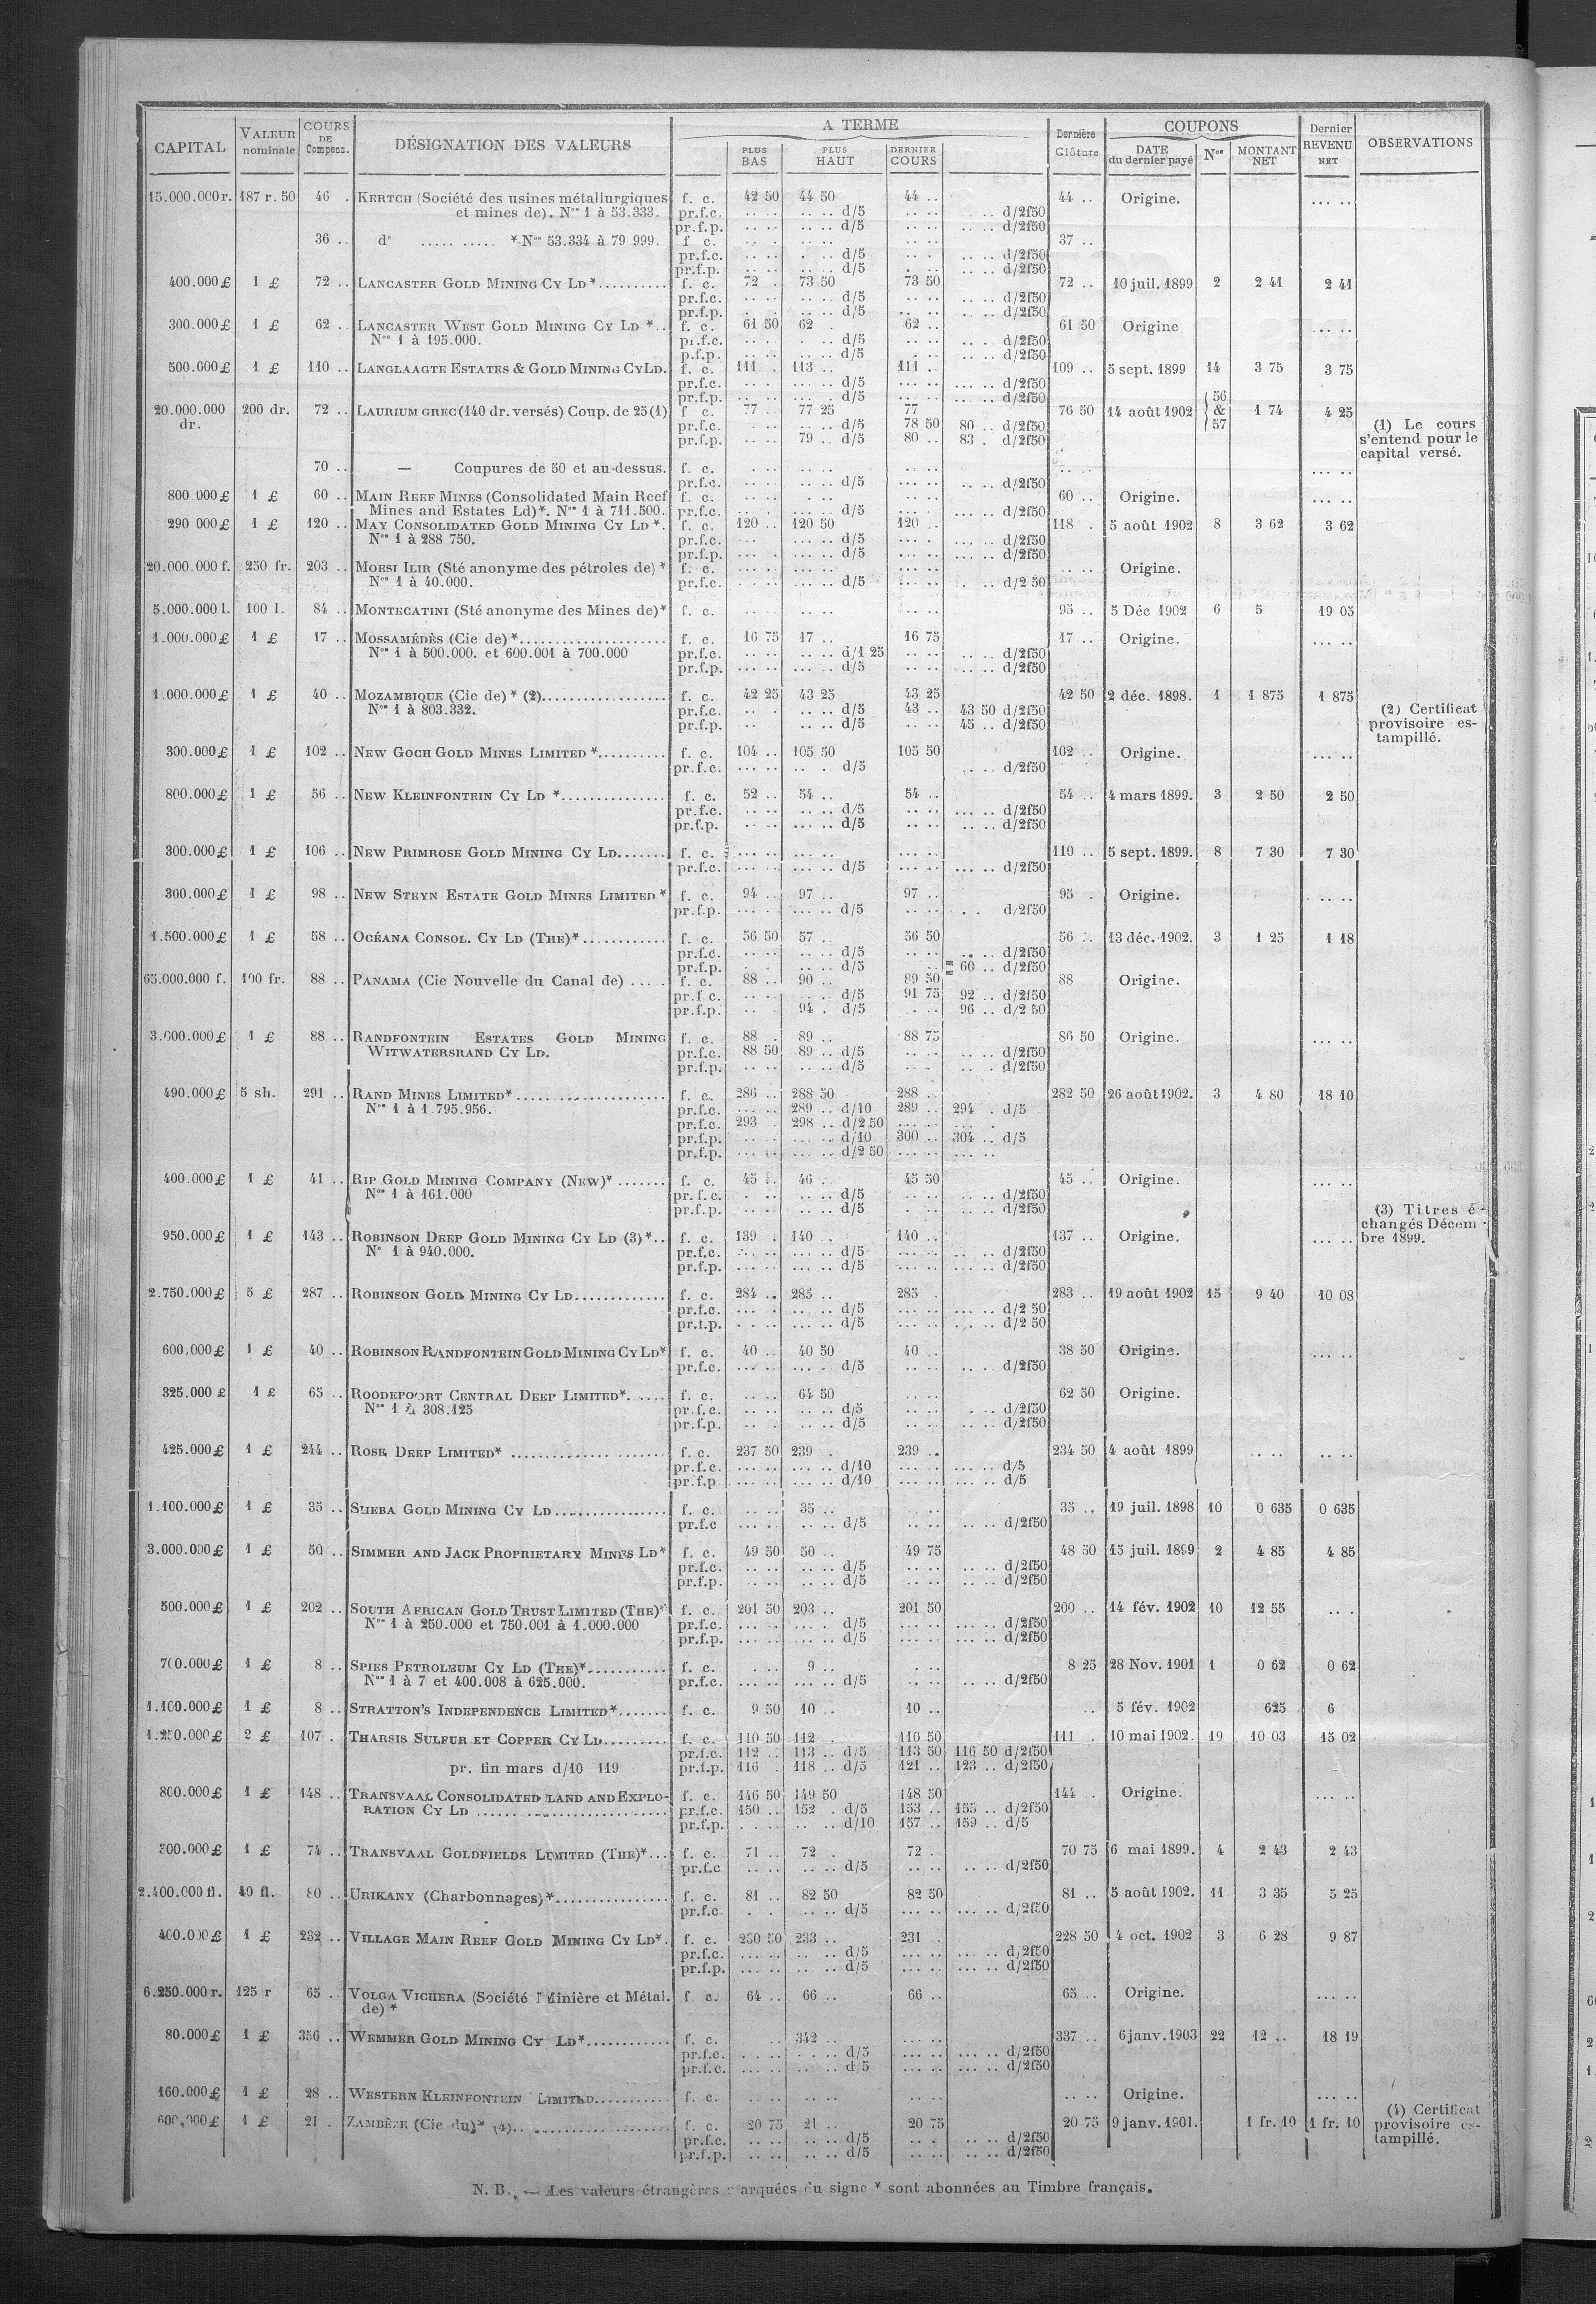 CAPITAL | VALEUR nominale | COURS DE Compens. | DÉSIGNATION DES VALEURS | A TERME | Dernière Clôture | COUPONS | Dernier REVENU NET | OBSERVATIONS
PLUS BAS | PLUS HAUT | DERNIER COURS | DATE du dernier payé | Nos | MONTANT NET
15.000.000 r. 187 r. 50 46 . KERTCH (Société des usines métallurgiques f. c. 42 50 44 50 44 .. 44 .. Origine. ... ..
et mines de). Nos 1 à 53.333. pr.f.c. .. .. .. .. d/5 .. .. .. .. d/2f50
pr.f.p. .. .. .. .. d/5 .. .. .. .. d/2f50
36 .. do ..... ..... * Nos 53.334 à 79 999. f c. 37 ..
pr.f.c. .. .. d/5 .. .. d/2f50
pr.f.p. .. .. d/5 .. .. d/2f50
400.000 £ 1 £ 72 .. LANCASTER GOLD MINING CY LD *.......... f. c. 72 . 73 50 73 50 72 .. 10 juil. 1899 2 2 41 2 41
pr.f.c. .. .. d/5 .. .. d/2f50
pr.f.p. .. .. d/5 .. .. d/2f50
300.000 £ 1 £ 62 .. LANCASTER WEST GOLD MINING CY LD *.. f. c. 61 50 62 . 62 .. 61 50 Origine ... ..
Nos 1 à 195.000. pr.f.c. .. .. d/5 .. .. d/2f50
p.f.p. .. .. d/5 .. .. d/2f50
500.000 £ 1 £ 110 .. LANGLAAGTE ESTATES & GOLD MINING CY LD. f. c. 111 . 113 .. 111 .. 109 .. 5 sept. 1899 14 3 75 3 75
pr.f.c. .. .. d/5 .. .. d/2f50
pr.f.p. .. .. d/5 .. .. d/2f50
20.000.000 dr. 200 dr. 72 .. LAURIUM GREC (140 dr. versés) Coup. de 25 (1) f c. 77 .. 77 25 77 76 50 14 août 1902 56 & 57 1 74 4 25
pr.f.c. .. .. d/5 78 50 80 .. d/2f50 (1) Le cours
pr.f.p. 79 .. d/5 80 .. 83 . d/2f50 s'entend pour le
capital versé.
70 .. — Coupures de 50 et au-dessus. f. c. .. .. ... ..
pr.f.c. .. .. d/5 .. .. d/2f50
800.000 £ 1 £ 60 .. MAIN REEF MINES (Consolidated Main Reef f. c. 60 .. Origine. ... ..
Mines and Estates Ld)*. Nos 1 à 711.500. pr.f.c. .. .. d/5 ... .. d/2f50
290 000 £ 1 £ 120 .. MAY CONSOLIDATED GOLD MINING CY LD *. f. c. 120 .. 120 50 120 .. 118 . 5 août 1902 8 3 62 3 62
Nos 1 à 288 750. pr.f.c. .. .. d/5 ... .. d/2f50
pr.f.p. .. .. d/5 ... .. d/2f50
20.000.000 f. 250 fr. 203 .. MOESI ILIR (Sté anonyme des pétroles de) * f. c. .. .. Origine. ... ..
Nos 1 à 40.000. pr.f.c. .. .. d/5 .. .. d/2 50
5.000.000 l. 100 l. 84 .. MONTECATINI (Sté anonyme des Mines de)* f. c. 95 .. 5 Déc 1902 6 5 19 05
1.000.000 £ 1 £ 17 .. MOSSAMÉDÈS (Cie de) *..................... f. c. 16 75 17 .. 16 75 17 .. Origine. ... ..
Nos 1 à 500.000. et 600.001 à 700.000 pr.f.c. .. .. d/1 25 .. .. d/2f50
pr.f.p. ... .. d/5 .. .. d/2f50
1.000.000 £ 1 £ 40 .. MOZAMBIQUE (Cie de) * (2).................. f. c. 42 25 43 25 43 25 42 50 2 déc. 1898. 1 1 875 1 875
Nos 1 à 803.332. pr.f.c. .. .. d/5 43 .. 43 50 d/2f50 (2) Certificat
pr.f.p. .. .. d/5 45 .. d/2f50 provisoire es-
tampillé.
300.000 £ 1 £ 102 .. NEW GOCH GOLD MINES LIMITED *.......... f. c. 104 .. 105 50 105 50 102 .. Origine. ... ..
pr.f.c. .. . d/5 .. .. d/2f50
800.000 £ 1 £ 56 .. NEW KLEINFONTEIN CY LD *............... f. c. 52 .. 54 .. 54 .. 54 .. 4 mars 1899. 3 2 50 2 50
pr.f.c. ... .. d/5 ... .. d/2f50
pr.f.p. ... .. d/5 .. .. d/2f50
300.000 £ 1 £ 106 .. NEW PRIMROSE GOLD MINING CY LD....... f. c. 110 .. 5 sept. 1899. 8 7 30 7 30
pr.f.c. ... .. d/5 ... .. d/2f50
300.000 £ 1 £ 98 .. NEW STEYN ESTATE GOLD MINES LIMITED * f. c. 94 .. 97 .. 97 .. 95 . Origine. .. ..
pr.f.p. ... .. d/5 . . d/2f50
1.500.000 £ 1 £ 58 .. OCÉANA CONSOL. CY LD (THE)*............ f. c. 56 50 57 .. 56 50 56 .. 13 déc. 1902. 3 1 25 1 18
pr.f.c. .. .. d/5 .. .. d/2f50
pr.f.p. .. .. d/5 60 .. d/2f50
65.000.000 f. 100 fr. 88 .. PANAMA (Cie Nouvelle du Canal de) ..... f. c. 88 .. 90 .. 89 50 88 Origine.
pr.f.c. .. .. d/5 91 75 92 .. d/2f50
pr.f.p. 94 . d/5 96 .. d/2 50
3.000.000 £ 1 £ 88 .. RANDFONTEIN ESTATES GOLD MINING f. c. 88 . 89 .. 88 75 86 50 Origine. ... ..
WITWATERSRAND CY LD. pr.f.c. 88 50 89 .. d/5 .. .. d/2f50
pr.f.p. .. .. d/5 .. .. d/2f50
490.000 £ 5 sh. 291 .. RAND MINES LIMITED*..................... f. c. 286 .. 288 50 288 .. 282 50 26 août 1902. 3 4 80 18 10
Nos 1 à 1 795.956. pr.f.c. 289 .. d/10 289 .. 294 . d/5
pr.f.c. 293 . 298 .. d/2 50 ... ..
pr.f.p. ... .. d/10 300 .. 304 .. d/5
pr.f.p. ... .. d/2 50 ... ..
400.000 £ 1 £ 41 .. RIP GOLD MINING COMPANY (NEW)* ....... f. c. 45 . 46 .. 45 50 45 .. Origine. ... ..
Nos 1 à 161.000 pr.f.c. .. .. d/5 .. .. d/2f50
pr.f.p. .. .. d/5 .. .. d/2f50 (3) Titres é-
changés Décem-
950.000 £ 1 £ 143 .. ROBINSON DEEP GOLD MINING CY LD (3) *.. f. c. 139 . 140 .. 140 .. 137 .. Origine. ... .. bre 1899.
No 1 à 940.000. pr.f.c. ... .. d/5 .. .. d/2f50
pr.f.p. ... .. d/5 ... .. d/2f50
2.750.000 £ 5 £ 287 .. ROBINSON GOLD MINING CY LD............. f. c. 284 .. 285 .. 285 . 283 .. 19 août 1902 15 9 40 10 08
pr.f.c. ... .. d/5 ... .. d/2 50
pr.f.p. ... .. d/5 ... .. d/2 50
600.000 £ 1 £ 40 .. ROBINSON RANDFONTEIN GOLD MINING CY LD* f. c. 40 .. 40 50 40 .. 38 50 Origine. ... ..
pr.f.c. ... . d/5 .. .. d/2f50
325.000 £ 1 £ 65 .. ROODEPOORT CENTRAL DEEP LIMITED*. .... f. c. 64 50 62 50 Origine.
Nos 1 à 308.125 pr.f.c. .. .. d/5 . .. d/2f50
pr.f.p. .. .. d/5 .. .. d/2f50
425.000 £ 1 £ 244 .. ROSE DEEP LIMITED* ...................... f. c. 237 50 239 . 239 .. 234 50 4 août 1899 .. .. .. ..
pr.f.c. ... .. d/10 ... .. d/5
pr.f.p ... .. d/10 ... .. d/5
1.100.000 £ 1 £ 35 .. SHEBA GOLD MINING CY LD................ f. c. 35 .. 35 .. 19 juil. 1898 10 0 635 0 635
pr.f.c .. .. d/5 .. .. d/2f50
3.000.000 £ 1 £ 50 .. SIMMER AND JACK PROPRIETARY MINES LD* f. c. 49 50 50 .. 49 75 48 50 15 juil. 1899 2 4 85 4 85
pr.f.c. .. .. d/5 ... .. d/2f50
pr.f.p. .. .. d/5 .. .. d/2f50
500.000 £ 1 £ 202 .. SOUTH AFRICAN GOLD TRUST LIMITED (THE)* f. c. 201 50 203 .. 201 50 200 .. 14 fév. 1902 10 12 55 .. .
Nos 1 à 250.000 et 750.001 à 1.000.000 pr.f.c. ... . d/5 ... .. d/2f50
pr.f.p. ... .. d/5 ... .. d/2f50
700.000 £ 1 £ 8 .. SPIES PETROLEUM CY LD (THE)*........... f. c. 9 .. 8 25 28 Nov. 1901 1 0 62 0 62
Nos 1 à 7 et 400.008 à 625.000. pr.f.c. ... .. d/5 .. .. d/2f50
1.100.000 £ 1 £ 8 .. STRATTON'S INDEPENDENCE LIMITED*....... f. c. 9 50 10 .. 10 .. .. 5 fév. 1902 625 6
1.250.000 £ 2 £ 107 . THARSIS SULFUR ET COPPER CY LD......... f. c. 110 50 112 . 110 50 111 . 10 mai 1902. 19 10 03 15 02
pr.f.c. 112 .. 113 .. d/5 113 50 116 50 d/2f50
pr. fin mars d/10 119 pr.f.p. 116 . 118 .. d/5 121 .. 123 .. d/2f50
800.000 £ 1 £ 148 .. TRANSVAAL CONSOLIDATED LAND AND EXPLO- f. c. 146 50 149 50 148 50 144 .. Origine. ... ..
RATION CY LD ............................ pr.f.c. 150 .. 152 . d/5 153 .. 155 .. d/2f50
pr.f.p. .. .. d/10 157 .. 159 .. d/5
300.000 £ 1 £ 74 .. TRANSVAAL GOLDFIELDS LIMITED (THE)*... f. c. 71 .. 72 . 72 . 70 75 6 mai 1899. 4 2 43 2 43
pr.f.c .. .. d/5 .. .. d/2f50
2.400.000 fl. 40 fl. 80 .. URIKANY (Charbonnages)*................. f. c. 81 .. 82 50 82 50 81 .. 5 août 1902. 11 3 35 5 25
pr.f.c .. .. d/5 ... .. d/2f50
400.000 £ 1 £ 232 .. VILLAGE MAIN REEF GOLD MINING CY LD*. f. c. 230 50 233 .. 231 .. 228 50 4 oct. 1902 3 6 28 9 87
pr.f.c. .. .. d/5 ... .. d/2f50
pr.f.p. .. .. d/5 ... .. d/2f50
6.250.000 r. 125 r 65 .. VOLGA VICHERA (Société Minière et Métal. f. c. 64 .. 66 .. 66 .. 65 .. Origine. ... ..
de) *
80.000 £ 1 £ 356 .. WEMMER GOLD MINING CY LD*............ f. c. 342 .. 337 .. 6 janv. 1903 22 12 .. 18 19
pr.f.c. . .. d/5 ... .. d/2f50
pr.f.c. ... .. d/5 ... .. d/2f50
160.000 £ 1 £ 28 .. WESTERN KLEINFONTEIN LIMITED........... f. c. .. .. Origine. ... ..
600.000 £ 1 £ 21 . ZAMBÈZE (Cie du)* (4)..................... f. c. 20 75 21 .. 20 75 20 75 9 janv. 1901. 1 fr. 10 1 fr. 10 (4) Certificat
pr.f.c. .. .. d/5 .. .. d/2f50 provisoire es-
pr.f.p. .. .. d/5 .. .. d/2f50 tampillé.
N. B. — Les valeurs étrangères marquées du signe * sont abonnées au Timbre français.